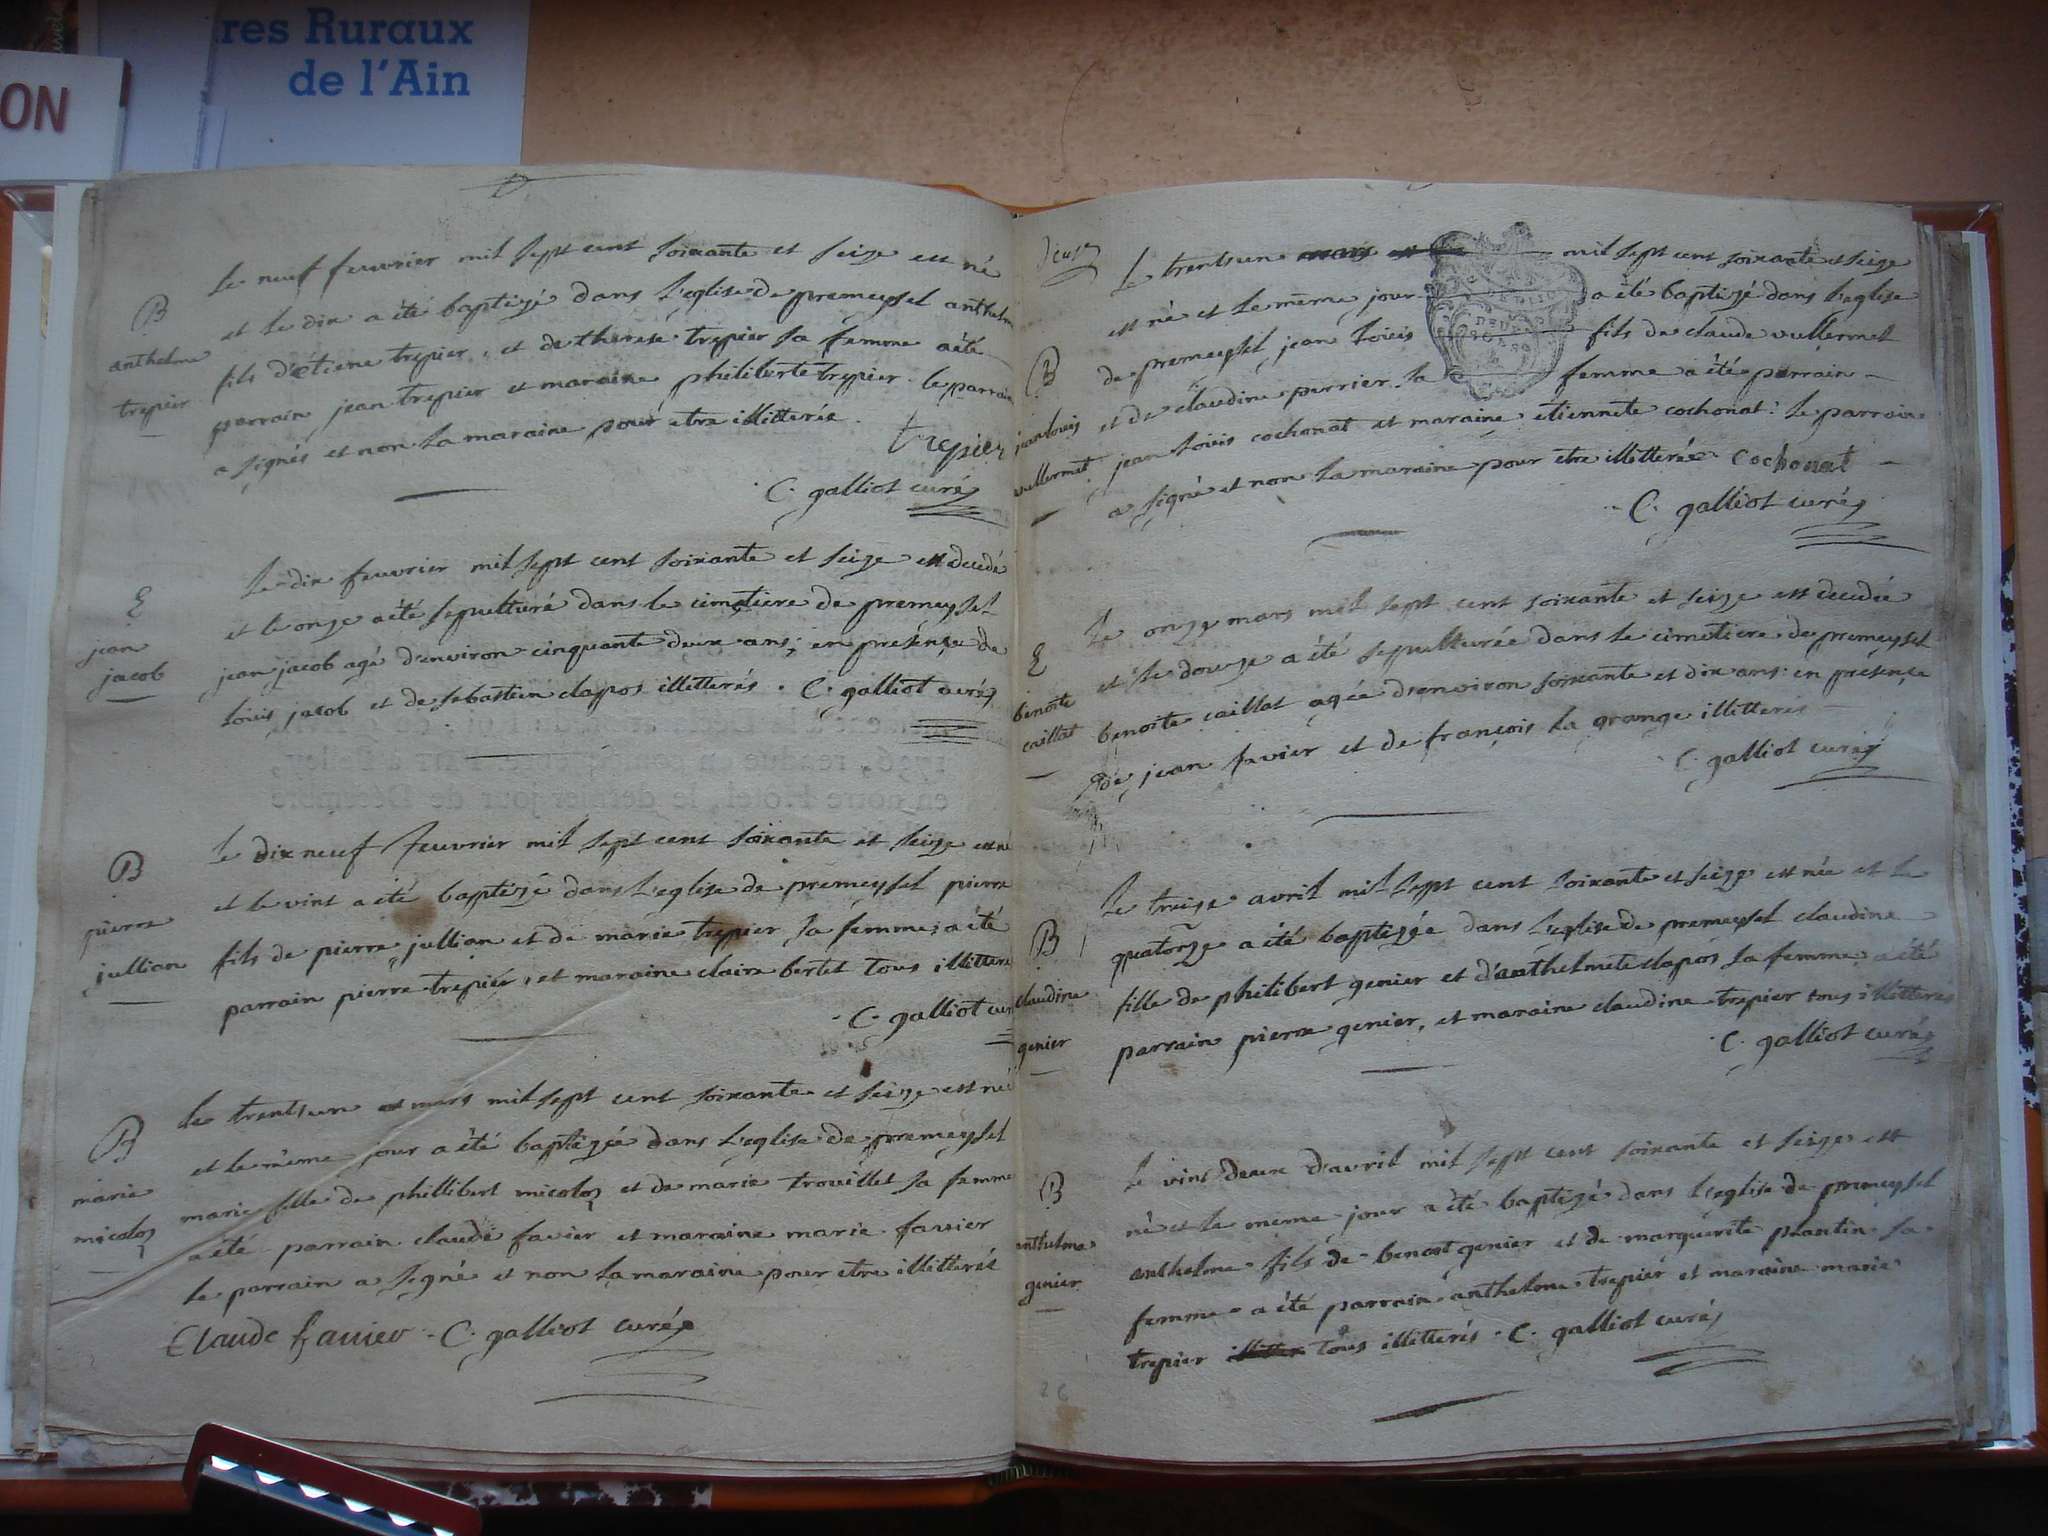 res Ruraux
de l'Ain
ON
Le neuf feuvrier mil sept cent soixante et seize est né
et le dix a été baptizé dans l'eglise de premeysel anthelm
fils d'étiene trepier, et de therese trepier sa femme a été
parrain jean trepier et maraine philiberte trepier. le parrain
a signés et non la maraine pour etre illitterée.
trepier
C. galliot curé
B
anthelme
trepier
Le dix feuvrier mil sept cent soixante et seize est decedé
et le onze a été sepulturé dans le cimetiere de premeysel
jean jacob agé d'environ cinquante deux ans; en présence de
loüis jacob et de sebastien clapos illetterés. C. galliot curé
E
jean
jacob
Le dix neuf feuvrier mil sept cent soixante et seize est né
et le vint a été baptizé dans l'eglise de premeysel pierre
fils de pierre jullian et de marie trepier sa femme; a été
parrain pierre trepier, et maraine claire bertet tous illittere
C. galliot cur
B
pierre
jullian
Le trentsun mars mil sept cent soixante et seize est née
et le même jour a été baptizée dans l'eglise de premeysel
marie fille de phillibert micoloz et de marie trouillet sa femme
a été parrain claude favier et maraine marie favier
le parrain a signé et non la maraine pour etre illitterée
Claude favier. C. galliot curé
B
marie
micoloz
Le trentsun mars mil sept cent soixante et seize
est né et le même jour a été baptizé dans l'eglise
de premeysel jean loüis fils de claude vullermet
et de claudine perrier sa femme a été parrain
jean loüis cochonat et maraine etiennete cochonat: le parroin
a signé et non la maraine pour etre illitterée cochonat
C. galliot curé
B
jean louis
vullermet
Le onze mars mil sept cent soixante et seize est decedée
et le douze a été sepulturée dans le cimetiere de premeysel
benoite caillat agée d'environ soixante et dix ans: en presençe
de jean favier et de françois la grange illitterés
C. galliot curé
E
benoite
caillat
Le treize avril mil sept cent soixante et seize est née et le
quatorze a été baptizée dans l'eglise de premeysel claudine
fille de philibert genier et d'anthelmete clapos sa femme a été
parrain pierre genier, et maraine claudine trepier tous illitterés
C. galliot curé
B
claudine
genier
Le vint deux d'avril mil sept cent soixante et seize est
né et le même jour a été baptizé dans l'eglise de premeysel
anthelme fils de benoit genier et de marguerite plantin sa
femme a été parrain anthelme trepier et maraine marie
trepier illitter tous illitterés. C. galliot curé
B
anthelme
genier